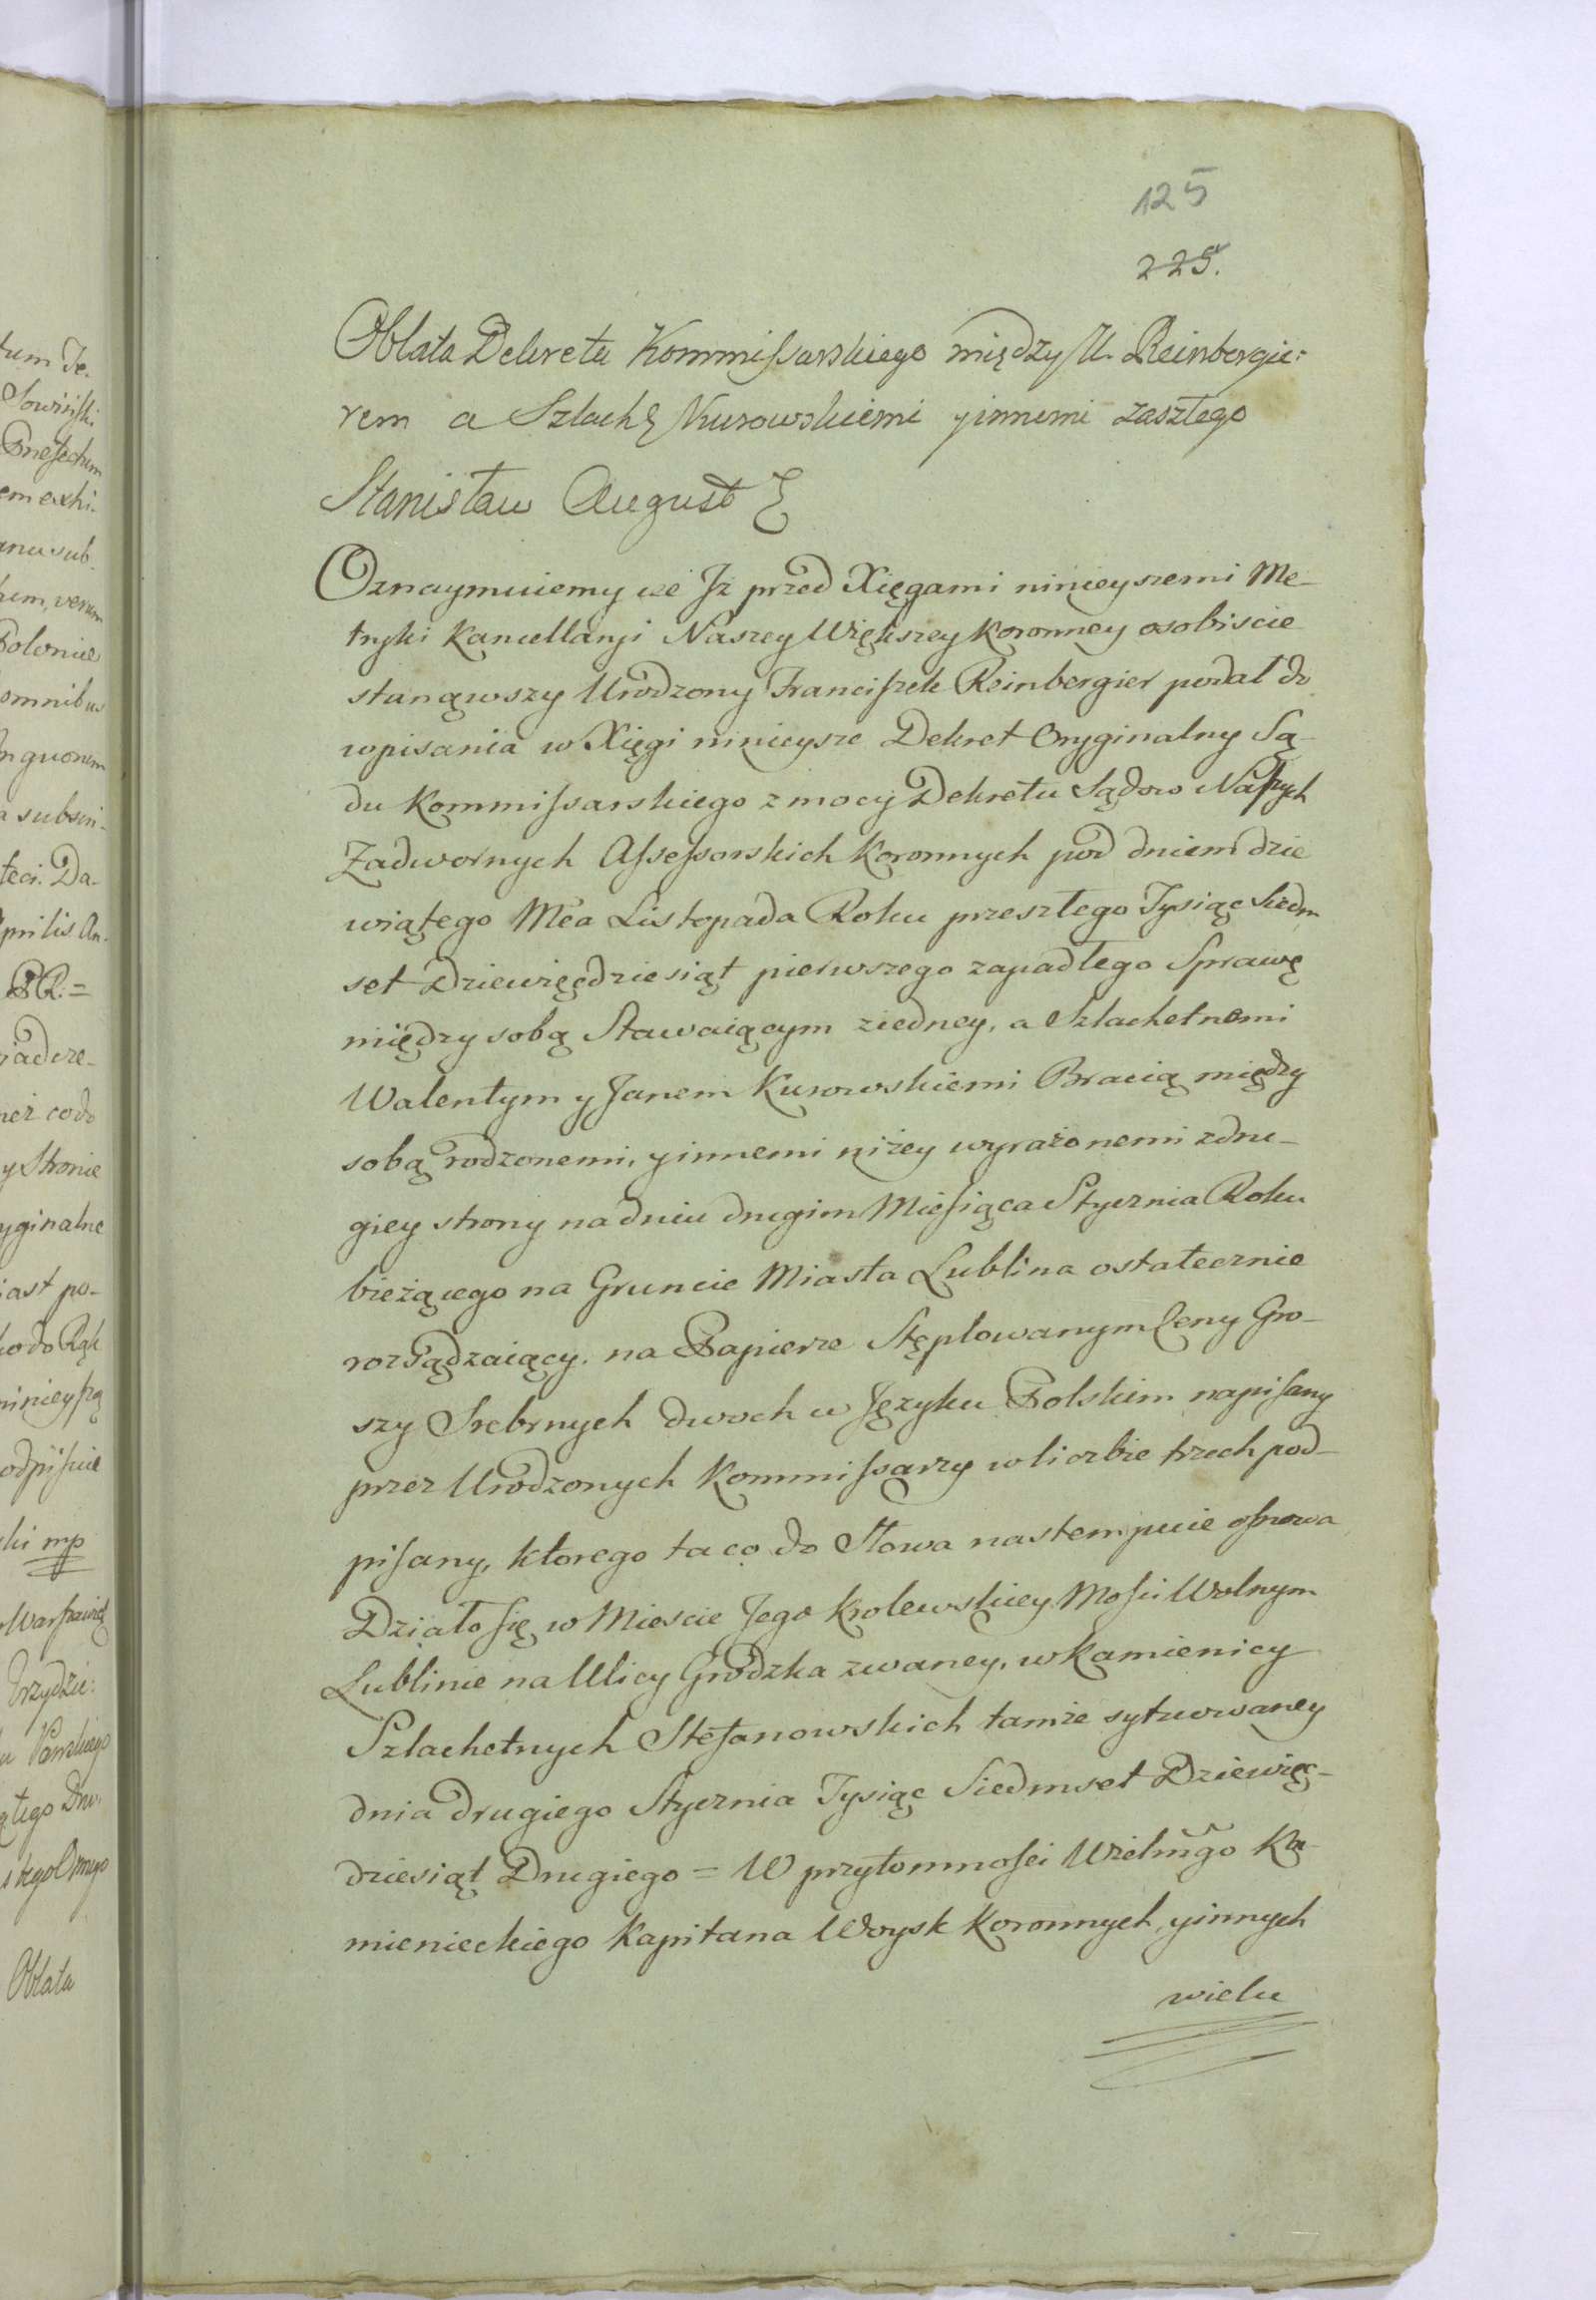 125
225.
Oblata Dekretu Kommissarskiego między U. Reinbergie:
rem a Szlach Kurowskiemi yinnemi zaszłego
Stanisław August
Oznaymuiemy Iż przed Xięgami ninieyszemi Me-
tryki Kancellaryi Naszey Większey Koronney osobiscie
stanąwszy Urodzony Franciszek Reinbergier podał do
wpisania w Xięgi ninieysze Dekret Oryginalny Są-
du Kommissarskiego z mocy Dekretu Sądow Naszych
Zadwornych Assessorskich Koronnych pod dniem dzie
wiątego Mca Listopada Roku przeszłego Tysiąc Siedm
set Dziewięćdziesiąt pierwszego zapadłego Sprawę
między sobą Stawaiącym ziedney, a Szlachetnemi
Walentym y Janem Kurowskiemi Bracią między
sobą rodzonemi, yinnemi niżey wyrażonemi zdru-
giey strony na dniu drugim Miesiąca Stycznia Roku
bieżącego na Gruncie Miasta Lublina ostatecznie
rozsądzaiący. na Papierze Stęplowanym Ceny Gro-
szy Srebrnych dwoch w Języku Polskim napisany
przez Urodzonych Kommissarzy w liczbie trzech pod-
pisany, ktorego ta co do Słowa nastempuie osnowa
Działo się w Miescie Jego Krolewskiey Mosci Wolnym
Lublinie na Ulicy Grodzka zwaney, w Kamienicy
Szlachetnych Stefanowskich tamże sytuowaney
dnia drugiego Stycznia Tysiąc Siedmset Dziewięć-
dziesiąt Drugiego = W przytomnosci Wielmgo Ka-
mienieckiego Kapitana Woysk Koronnych, yinnych
wielu